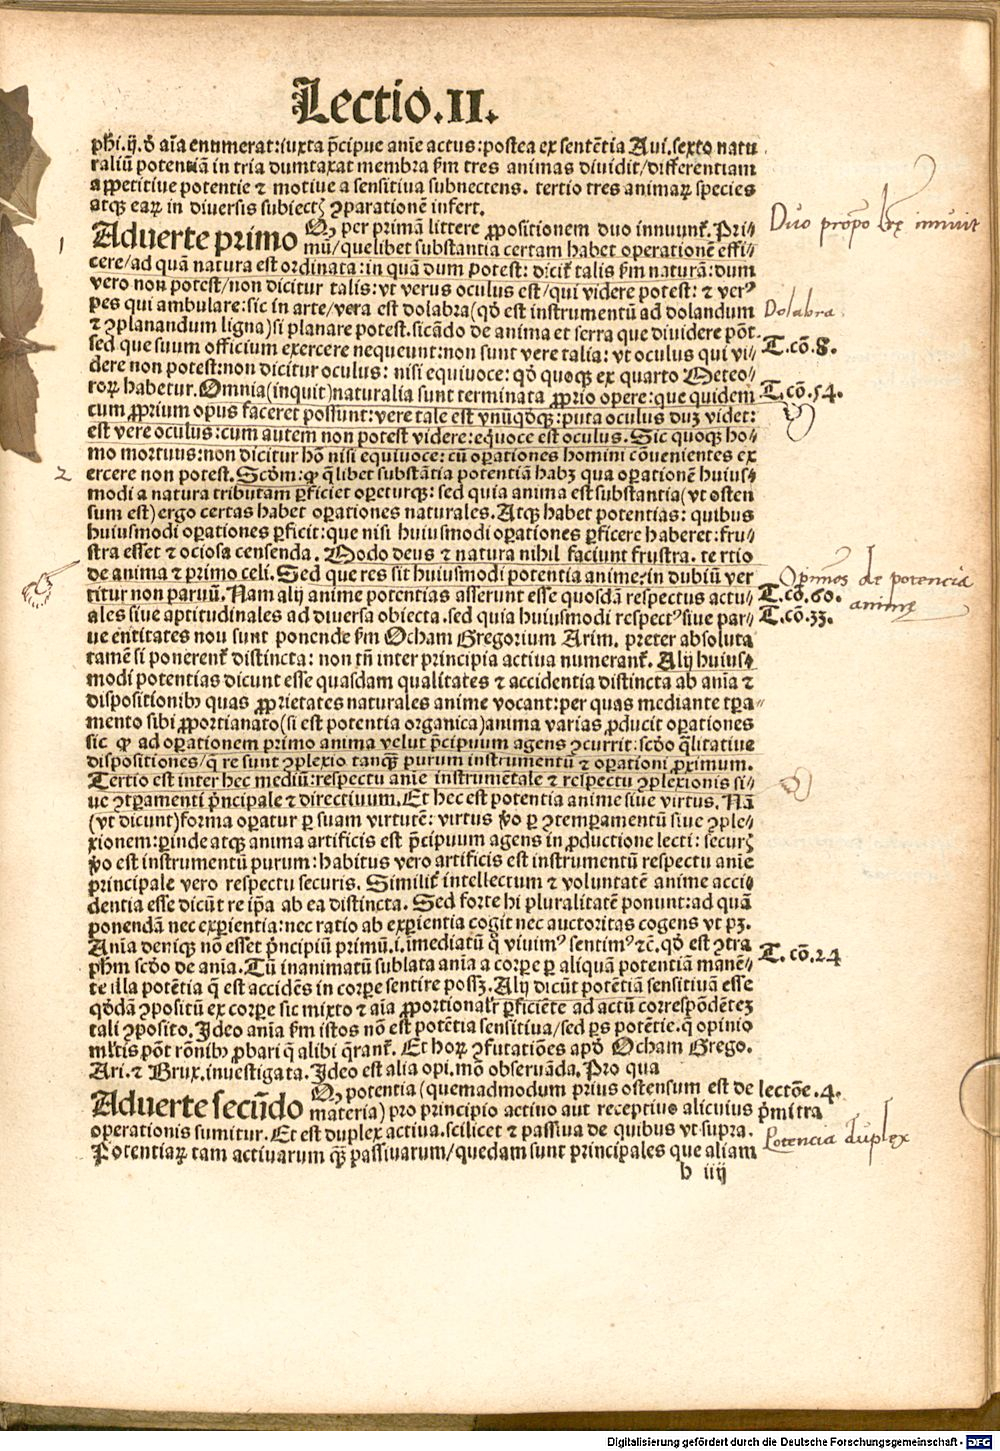 Lectio.II.
ph̄i.ij.ō aīa enumerat:iuxta p̄cipue anīe actus:postea ex sentētia Aui.sexto natu
raliū potentiā in tria dumtaxat membra ẜm tres animas diuidit/differentiam
appetitiue potentie ⁊ motiue a sensitiua subnectens. tertio tres animaꝝ species
atqꝫ eaꝝ in diuersis subiectꝭ ꝯparationē infert.
Aduerte primo Qꝫ per primā littere ꝓpositionem duo innuunt᷑. Pri⸗
mū/quelibet substantia certam habet operationē effi⸗
cere/ad quā natura est ordinata:in quā dum potest: dicit᷑ talis ẜm naturā:dum
vero non potest/non dicitur talis:vt verus oculus est/qui videre potest: ⁊ verꝰ
pes qui ambulare:sic in arte/vera est dolabra(qō est instrumentū ad dolandum
⁊ ꝯplanandum ligna)si planare potest.sicādo de anima et serra que diuidere pōt.
sed que suum officium exercere nequeunt:non sunt vere talia: vt oculus qui vi⸗
dere non potest:non dicitur oculus: nisi equiuoce: qō quoqꝫ ex quarto Meteo⸗
roꝝ habetur.Omnia(inquit)naturalia sunt terminata ꝓprio opere:que quidem
cum ꝓprium opus facere possunt:vere tale est vnūqōqꝫ:puta oculus duꝫ videt:
est vere oculus:cum autem non potest videre:eqͥuoce est oculus. Sic quoqꝫ ho⸗
mo mortuus:non dicitur hō nisi equiuoce: cū oꝑationes homini cōuenientes ex
ercere non potest.Scōm:ꝙ qͥlibet substātia potentiā habꝫ qua oꝑationē huius⸗
modi a natura tributam ꝑficiet oꝑeturqꝫ: sed quia anima est substantia(vt osten
sum est)ergo certas habet oꝑationes naturales.Atqꝫ habet potentias: quibus
huiusmodi oꝑationes ꝑficit:que nisi huiusmodi oꝑationes ꝑficere haberet:fru⸗
stra esset ⁊ ociosa censenda. Modo deus ⁊ natura nihil faciunt frustra. te rtio
de anima ⁊ primo celi. Sed que res sit huiusmodi potentia anime:in dubiū ver
titur non paruū. Nam alij anime potentias asserunt esse quosdā respectus actu⸗
ales siue aptitudinales ad diuersa obiecta.sed quia huiusmodi respectꝰsiue par⸗
ue entitates nou sunt ponende ẜm Ocham Gregorium Arim. preter absoluta
tamē si ponerent᷑ distincta: non tn̄ inter principia actiua numerant᷑. Alij huius⸗
modi potentias dicunt esse quasdam qualitates ⁊ accidentia distincta ab anīa ⁊
dispositionibꝫ quas ꝓprietates naturales anime vocant:per quas mediante tꝑa⸗
mento sibi ꝓportianato(si est potentia organica)anima varias ꝓducit oꝑationes
sic ꝙ ad oꝑationem primo anima velut p̄cipuum agens ꝯcurrit:scōo qͣlitatiue
dispositiones/q̄ re sunt ꝯplexio tanqꝫ̄ purum instrumentū ⁊ oꝑationi ꝓximum.
Tertio est inter hec mediū:respectu anīe instrumētale ⁊ respectu ꝯplexionis si⸗
ue ꝯtꝑamenti pͥncipale ⁊ directiuum. Et hec est potentia anime siue virtus. Nā
(vt dicunt)forma oꝑatur ꝑ suam virtutē: virtus ꝟo ꝑ ꝯtemꝑamentū siue ꝯple⸗
xionem:ꝑinde atqꝫ anima artificis est p̄cipuum agens in ꝓductione lecti: securꝭ
ꝟo est instrumentū purum:habitus vero artificis est instrumentū respectu anīe
principale vero respectu securis. Similit᷑ intellectum ⁊ voluntatē anime acci⸗
dentia esse dicūt re ip̄a ab ea distincta. Sed forte hi pluralitatē ponunt:ad quā
ponendā nec exꝑientia:nec ratio ab exꝑientia cogit nec auctoritas cogens vt pꝫ.
Anīa deniqꝫ nō esset pͥncipiū primū.i.imediatū qͦ viuimꝰ sentimꝰ ⁊c̄.qō est ꝯtra
ph̄m scōo de anīa. Tū inanimatū sublata anīa a corꝑe ꝑ aliquā potentiā manē⸗
te illa potētia q̄ est accidēs in corꝑe sentire possꝫ. Alij dicūt potētiā sensitiuā esse
qōdā ꝯpositū ex corꝑe sic mixto ⁊ aīa ꝓportionalr̄ ꝑficiēte ad actū correspōdēteꝫ
tali ꝯposito. Ideo anīa ẜm istos nō est potētia sensitiua/sed ꝑs potētie.q̄ opinio
ml̄tis pōt rōnibꝫ ꝓbari q̄ alibi qͣrant᷑. Et hoꝝ ꝯfutatiōes apō Ocham Grego.
Ari.⁊ Brux.inuestigata. Ideo est alia opi.mō obseruāda. Pro qua
Aduerte secūdo Qꝫ potentia (quemadmodum prius ostensum est de
materia) pro principio actiuo aut receptiuo alicuius
operationis sumitur. Et est duplex actiua.scilicet ⁊ passiua de quibus vt supra.
Potentiaꝝ tam actiuarum qꝫ̄ passiuarum/quedam sunt principales que aliam
b iiij
1
2
Duo propo lr̄ę innuit
Dolabra
T.cō.8.
T.cō.54.
Opiniōes de potencia
animę
T.cō.60.
T.cō.33.
T. cō.24
lectōe .4.
pͥmi tra
Potencia duplex
Digitalisierung gefördert durch die Deutsche Forschungsgemeinschaft - DFG